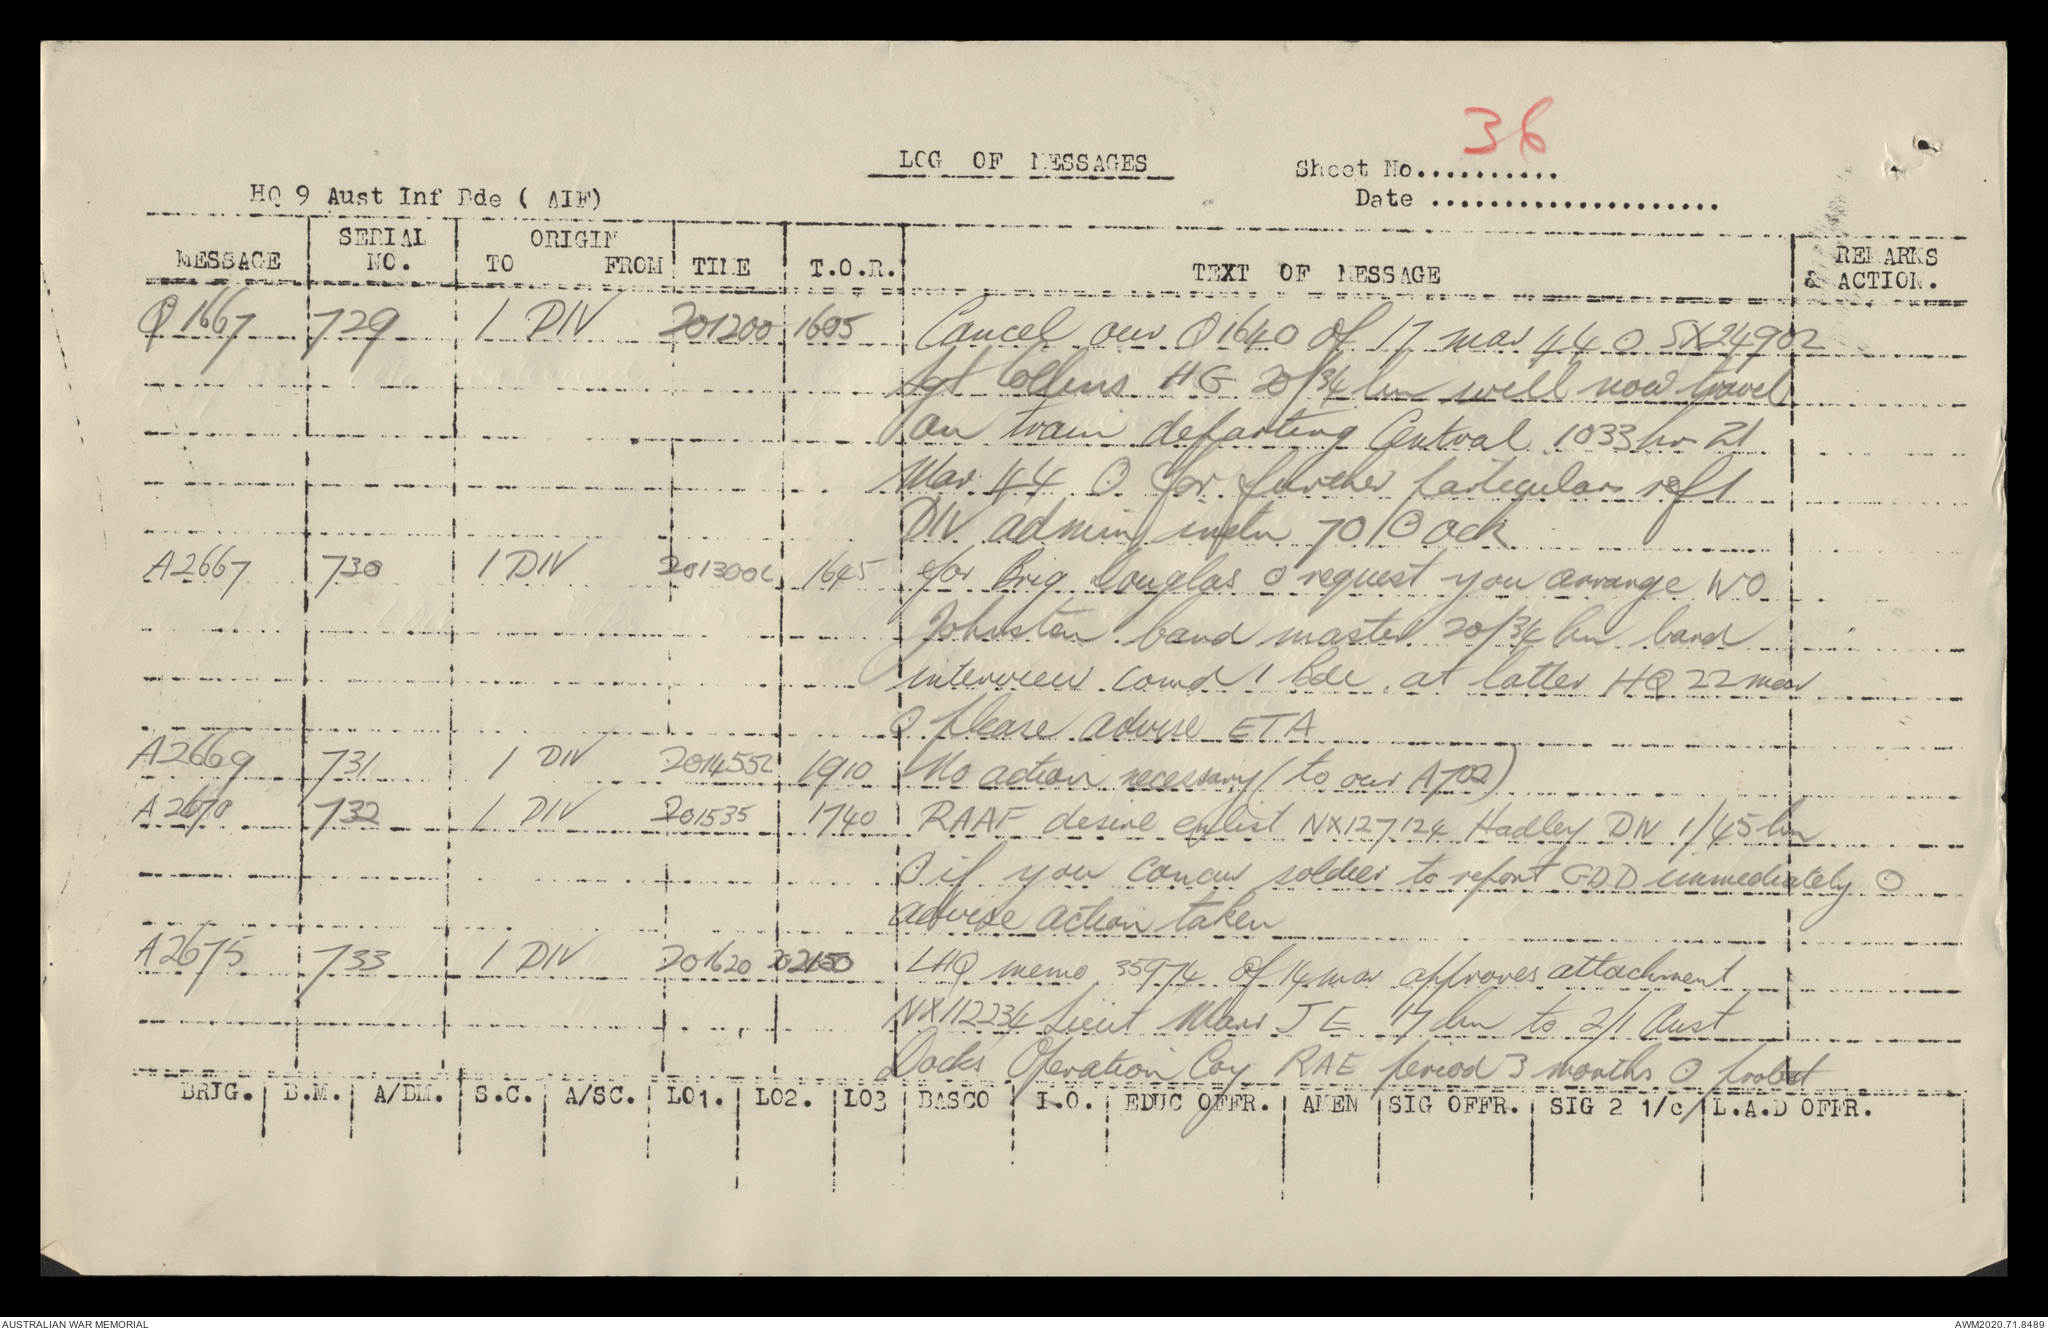 36
LOG OF MESSAGES
Sheet No..........
HQ 9 Aust Inf Bde ( AIF)
Date ....................
MESSAGE SERIAL NO. ORIGIN TO FROM TIME T.O.R. TEXT OF MESSAGE REMARKS & ACTION.
Q1667 729 1 DIV 201200 1605 Cancel our Q1640 of 17 mar 44 O SX24902
Sgt Collins HG 20/34 bn will now travel
on train departing Central 1033 hr 21
Mar 44 O for further particulars ref 1
DIV admin instn 70 O ack
A2667 730 1 DIV 201300L 1645 for Brig Douglas O request you arrange WO
Johnston band master 20/34 bn band
interview comd 1 Bde at latter HQ 22 mar
O please advise ETA
A2669 731 1 DIV 201455L 1910 No action necessary (to our A702)
A2670 732 1 DIV 201535 1740 RAAF desire enlist NX127124 Hadley DN 1/45 bn
O if you concur soldier to report GDD immediately O
advise action taken
A2675 733 1 DIV 201620 202150 LHQ memo 35974 of 14 mar approves attachment
NX112234 Lieut Marr JE 17 bn to 2/1 Aust
Docks Operation Coy RAE period 3 months O
BRIG. B.M. A/BM. S.C. A/SC. LO1. LO2. LO3 BASCO I.O. EDUC OFFR. AMEN SIG OFFR. SIG 2 1/c L.A.D OFFR.
AUSTRALIAN WAR MEMORIAL
AWM2020.71.8489